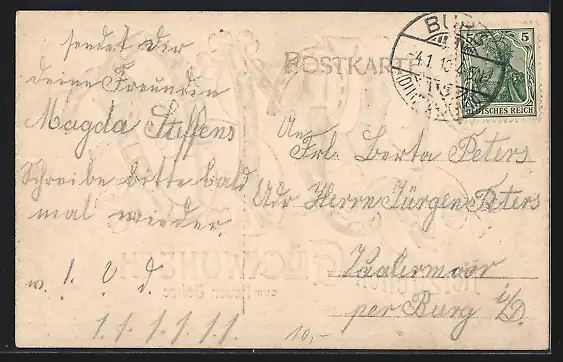 sendet Dir
deine Freundin
Magda Steffens
Schreibe bitte bald
mal wieder.
w. 1. V. d.
1.1.1.1.11.
10,-
POSTKARTE
BURG
5 5
DEUTSCHES REICH
An
Frl. Berta Peters
Adr Herrn Jürgen Peters
Vaalermoor
per Burg i/D.
GLÜCKWUNSCH
zum Neuen Jahre